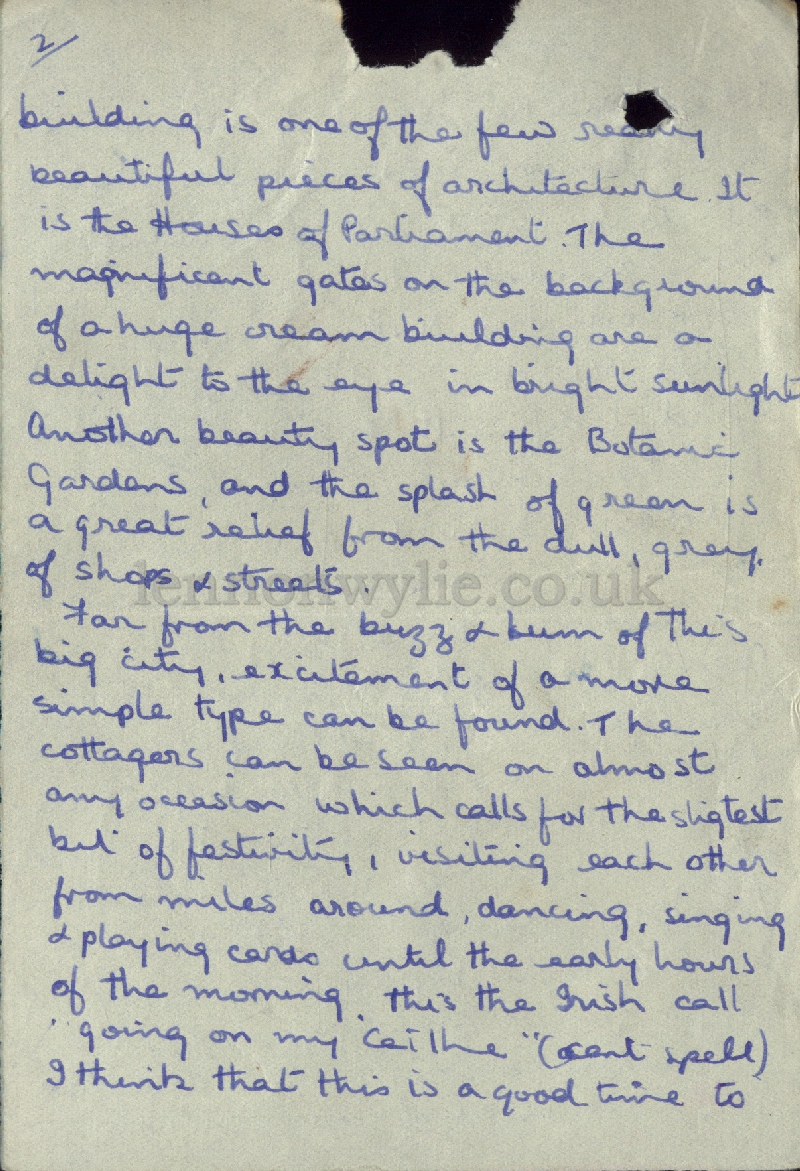 2/
building is one of the few really
beautiful pieces of architecture. It
is the Houses of Parliament. The
magnificent gates on the background
of a huge cream building are a
delight to the eye in bright sunlight
Another beauty spot is the Botanic
Gardens, and the splash of green is
a great relief from the dull, grey,
of shops & streets.
lennonwylie.co.uk
Far from the buzz & hum of this
big city, excitement of a more
simple type can be found. The
cottagers can be seen on almost
any occasion which calls for the sligtest
bit of festivity, visiting each other
from miles around, dancing, singing
& playing cards until the early hours
of the morning. this the Irish call
"going on my (cant spell)
I think that this is a good time to